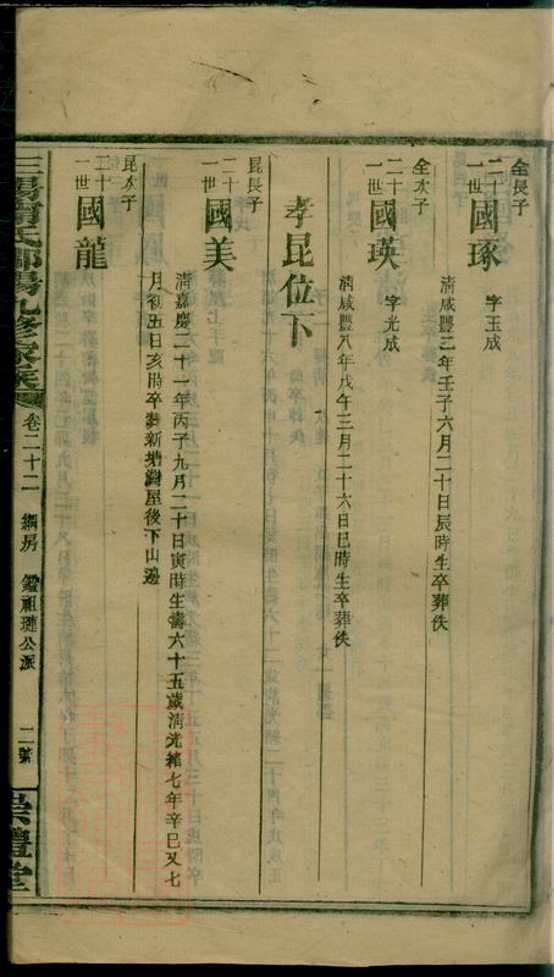 全長子
二十一世 國琢 字玉成
清咸豐二年壬子六月二十日辰時生卒葬佚
全次子
二十一世 國瑛 字光成
清咸豐八年戊午三月二十六日巳時生卒葬佚
孝昆位下
昆長子
二十一世 國美
清嘉慶二十一年丙子九月二十日寅時生壽六十五歲清光緒七年辛巳又七
月初五日亥時卒葬新塘灣屋後下山邊
昆次子
二十一世 國龍
三陽 氏 陽九修家
卷二十二 綱房 鑑祖璉公派 二號
崇禮堂